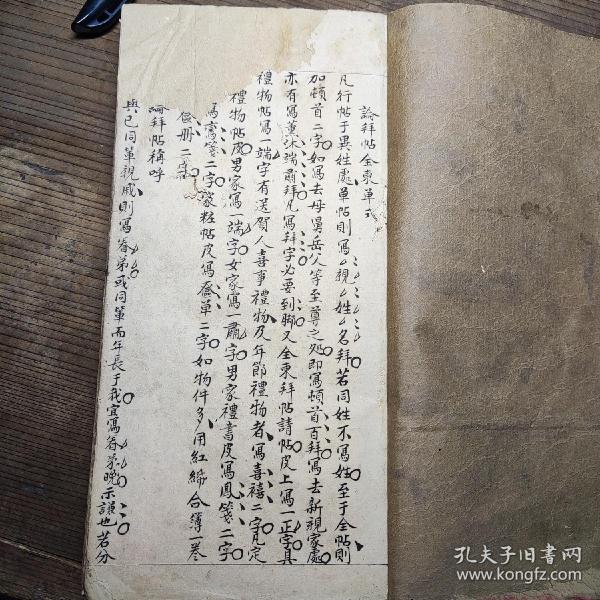 論拜帖全柬單式
凡行帖于異姓處單帖則寫親姓名拜若同姓不寫姓至于全帖則
加頓首二字如寫去母舅岳父等至尊之処即寫頓首百拜寫去新親家處
亦有寫薰沐端肅拜凡寫拜字必要到脚又全柬拜帖請帖皮上寫一正字其
禮物帖寫一端字有送賀人喜事禮物及年節禮物者寫喜禧二字凡定
禮物帖皮男家寫一端字女家寫一肅字男家禮書皮寫鳳箋二字
寫鸞箋二字裝粧帖皮寫奩單二字如物件多用紅綿合簿一卷
奩册二葉
論拜帖稱呼
與已同軰親戚則寫眷弟或同軰而年長于我宜寫眷弟晚示謙也若分
孔夫子旧书网
www.kongfz.com